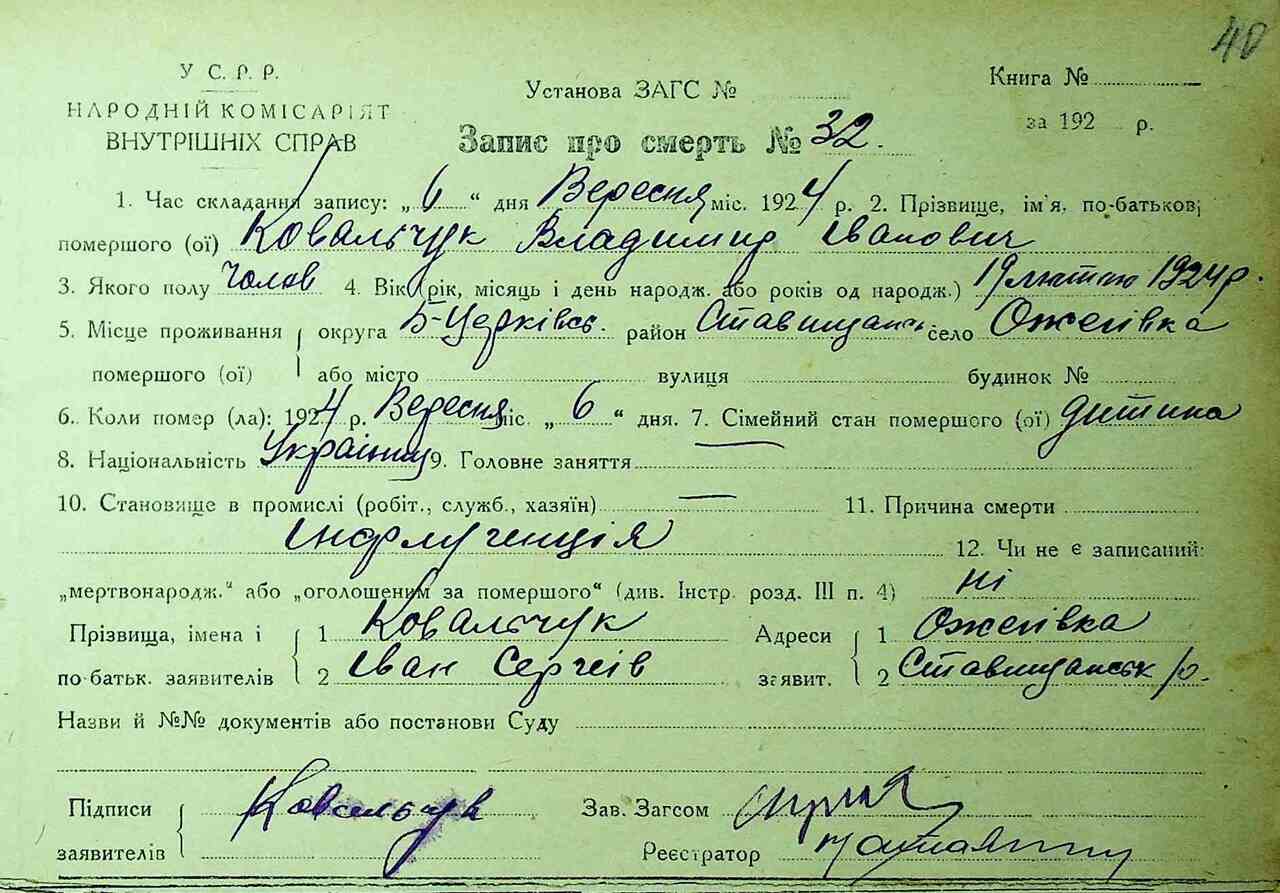 40
У С. Р. Р.
НАРОДНІЙ КОМІСАРІЯТ
ВНУТРІШНІХ СПРАВ
Установа ЗАГС №
Книга №
за 192 р.
Запис про смерть № 32.
1. Час складання запису: „ 6 “ дня Вересня міс. 1924 р. 2. Прізвище, ім'я, по-батькові
помершого (ої) Ковальчук Владимир Іванович
3. Якого полу Чолов 4. Вік (рік, місяць і день народж. або років од народж.) 19 лютого 1924 р.
5. Місце проживання округа Б-Церківсь. район Ставищанс село Ожегівка
помершого (ої) або місто вулиця будинок №
6. Коли помер (ла): 1924 р. Вересня міс. „ 6 “ дня. 7. Сімейний стан помершого (ої) дитина
8. Національність 9. Головне заняття —
10. Становище в промислі (робіт., служб., хазяїн) — 11. Причина смерти
Інфлуенція 12. Чи не є записаний:
„мертвонародж.“ або „оголошеним за помершого“ (див. Інстр. розд. III п. 4) ні
Прізвища, імена і 1 Ковальчук Адреси 1 Ожегівка
по-батьк. заявителів 2 Іван Сергіїв заявит. 2 Ставищанськ р.
Назви й №№ документів або постанови Суду
Підписи Ковальчук Зав. Загсом
заявителів Реєстратор